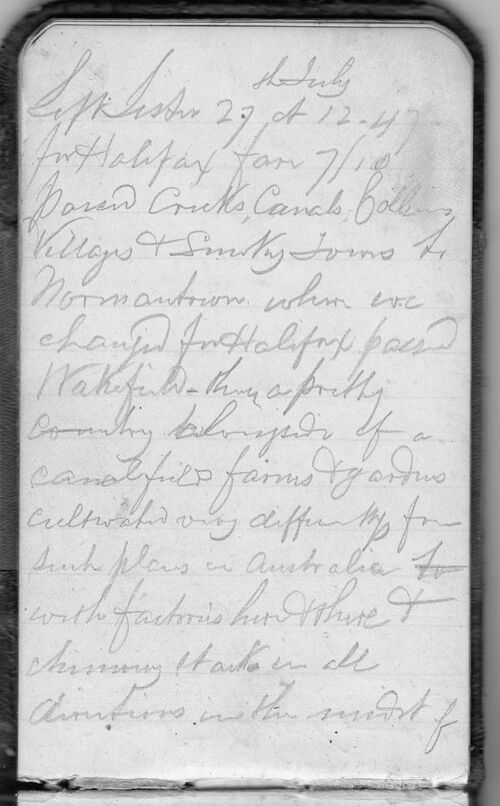 th July
Left Leister 27 at 12-47
for Halifax fare 7/10
passed Creeks, Canals, Colliers
Villages & Smoky Towns to
Normantown where we
changed for Halifax passed
Wakefield - then a pretty
country alongside of a
canal fields farms & gardens
cultivated very differently from
such places in Australia
with factories here & there &
chimney stacks in all
directions in the midst of